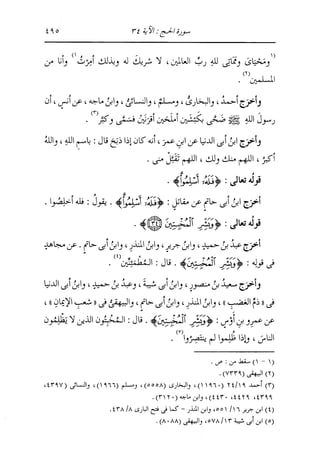 سورة الحج : الآية ٣٤
٤٩٥
(١) ومحياى ومماتى لله ربِّ العالمين ، لا شريك له وبذلك أُمِرْتُ (١) وأنا من
المسلمين (٢) .
وأخرَج أحمدُ ، والبخارىُّ ، ومسلمٌ ، والنسائىُّ ، وابنُ ماجه ، عن أنسٍ ، أن
رسولَ اللهِ ﷺ ضحَّى بكبشَين أملحَين أقرنَين فسمَّى وكبَّر (٣) .
وأخرَج ابنُ أبى الدنيا عن ابنِ عمرَ ، أنه كان إذا ذبَح قال : باسمِ اللهِ ، واللهُ
أكبرُ ، اللهم منك ولك ، اللهم تقبَّلْ منى .
قولُه تعالى : ﴿فَلَهُۥٓ أَسْلِمُوا۟﴾ .
أخرَج ابنُ أبى حاتمٍ عن مقاتلٍ : ﴿فَلَهُۥٓ أَسْلِمُوا۟﴾ . يقولُ : فله أخلِصوا .
قولُه تعالى : ﴿وَبَشِّرِ ٱلْمُخْبِتِينَ ﴿٣٤﴾﴾ .
أخرَج عبدُ بنُ حميدٍ ، وابنُ جريرٍ ، وابنُ المنذرِ ، وابنُ أبى حاتمٍ ، عن مجاهدٍ
فى قولِه : ﴿وَبَشِّرِ ٱلْمُخْبِتِينَ﴾ . قال : المطمَئنِّين (٤) .
وأخرَج سعيدُ بنُ منصورٍ ، وابنُ أبى شيبةَ ، وعبدُ بنُ حميدٍ ، وابنُ أبى الدنيا
فى « ذمِّ الغضبِ » ، وابنُ المنذرِ ، وابنُ أبى حاتمٍ ، والبيهقىُّ فى « شعبِ الإيمانِ » ،
عن عمرِو بنِ أوسٍ : ﴿وَبَشِّرِ ٱلْمُخْبِتِينَ﴾ . قال : المخبتون الذين لا يَظلِمون
الناسَ ، وإذا ظُلِموا لم ينتصِروا (٥) .
(١ - ١) سقط من : ص .
(٢) البيهقى (٧٣٣٩) .
(٣) أحمد ١٩/ ٢٤ (١١٩٦٠) ، والبخارى (٥٥٥٨) ، ومسلم (١٩٦٦) ، والنسائى (٤٣٩٧ ،
٤٣٩٩ ، ٤٤٢٩ ، ٤٤٣٠) ، وابن ماجه (٣١٢٠) .
(٤) ابن جرير ١٦/ ٥٥١ ، وابن المنذر - كما فى فتح البارى ٨/ ٤٣٨ .
(٥) ابن أبى شيبة ١٣/ ٥٧٨ ، والبيهقى (٨٠٨٨) .